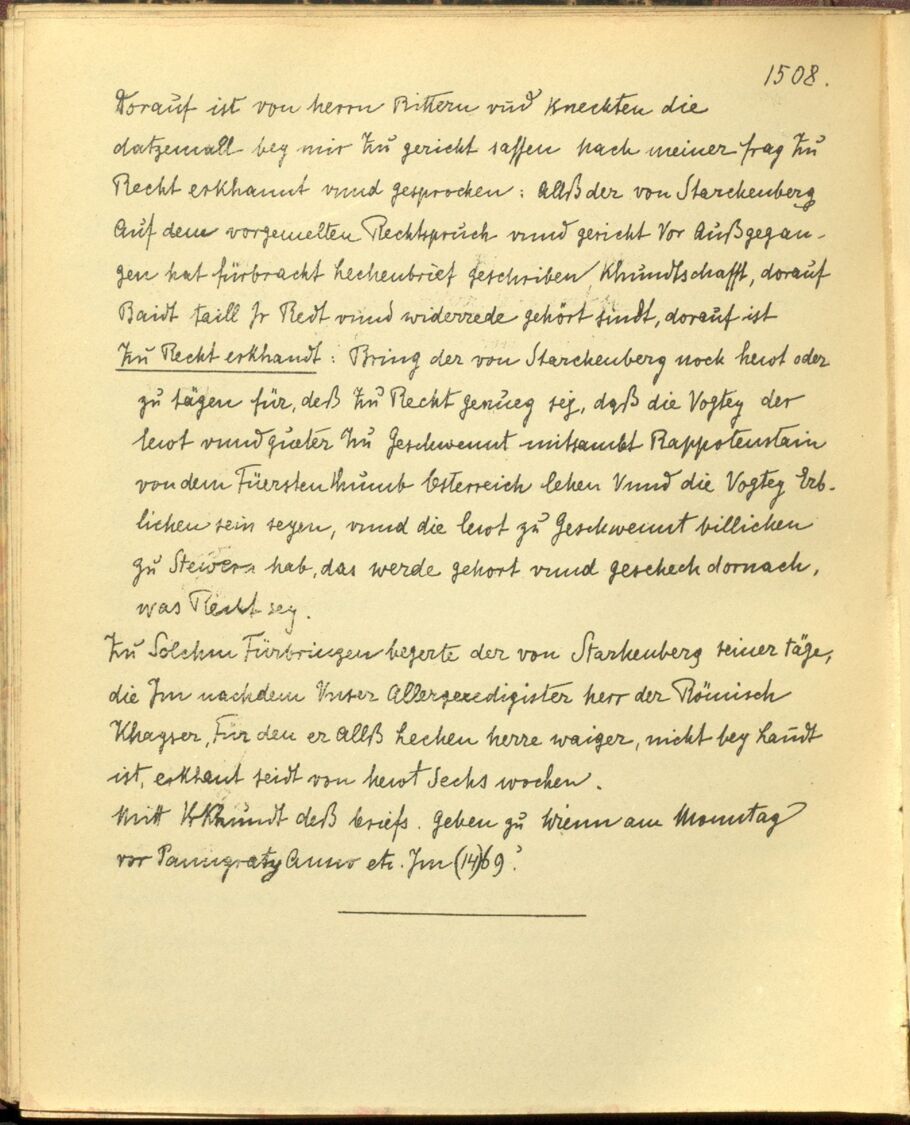 1508.
Dorauf ist von herrn Rittern vnd Knechten die
datzemall bey mir Zu gericht sassen nach meiner frag Zu
Recht erkhannt vnnd gesprochen : Allß der von Starchenberg
Auf dem vorgemelten Rechtspruch vnnd gericht Vor Außgegan-
gen hat fürbracht Lechenbrief geschriben Khundtschafft, dorauf
Baidt taill Jr Redt vnnd widerrede gehört sindt, dorauf ist
Zu Recht erkhandt : Bring der von Starchenberg noch hewt oder
zu tägen für, deß Zu Recht genueg sej, daß die Vogtey der
lewt vnnd gueter Zu Geschwennt mitsambt Rappotenstain
von dem Füerstenthumb Österreich lehen Vnnd die Vogtey Erb-
lichen sein seyen, vnnd die lewt zu Geschwennt billichen
zu Stewern hab, das werde gehort vnnd geschech dornach,
was Recht sey.
Zu Solchm Fürbringen begerte der von Starkenberg seiner täge,
die Jm nachdem Vnser Allergenedigister herr der Römisch
Khayser, Für den er Allß Lechen herre waiger, nicht bey Landt
ist, erkhant seidt von hewt Sechs wochen.
Mitt Vrkhundt deß briefs. Geben zu Wienn am Monntag
vor Panngratzy Anno etc. Jm (14)69?